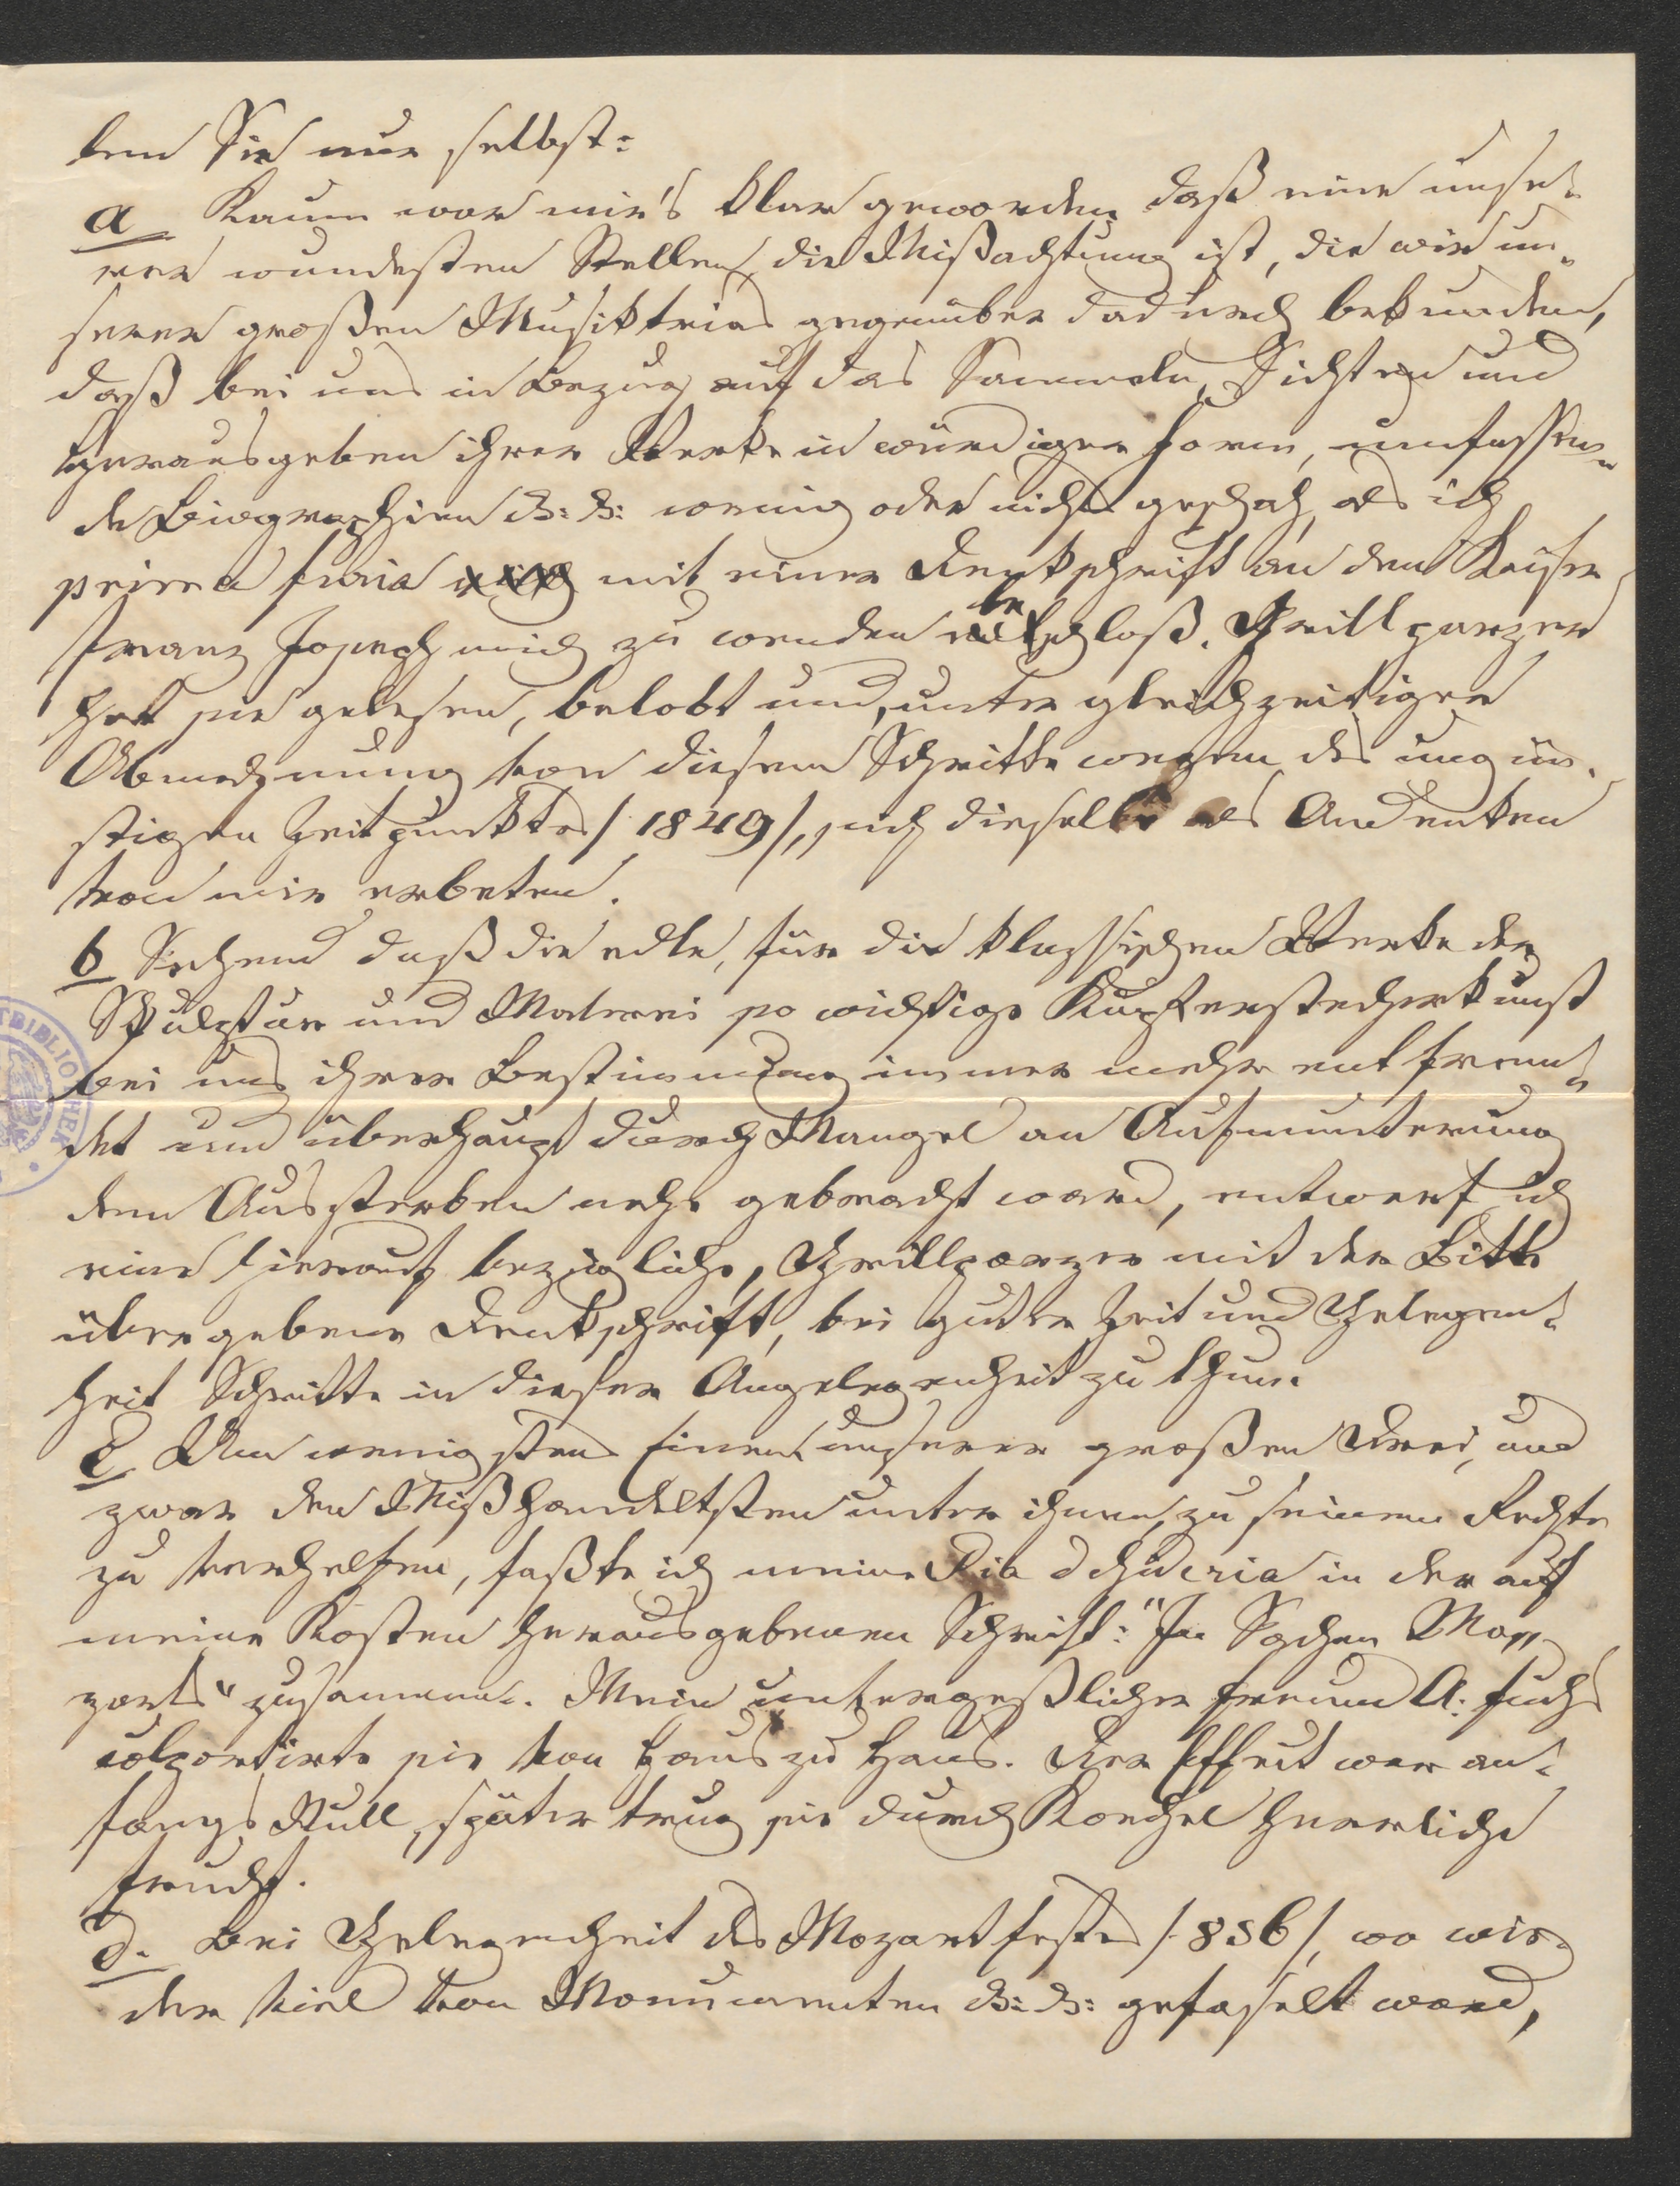 len Sie nur selbst:
a Kaum war mir's klar geworden daß eine unse-
rer wundesten Stellen, die Mißachtung ist, die wir un-
serer großen Musiktrias gegenüber dadurch bekunden,
daß bei uns in Bezug auf das Sammeln, Sichten und
Herausgeben ihrer Werke in würdiger Form, umfassen-
de Biographien &: &: wenig oder nichts geschah, als ich
prima furia mit einer Denkschrift an den Kaiser
Franz Joseph mich zu wenden beschloß. Grillparzer
hat sie gelesen, belobt und, unter gleichzeitiger
Abmahnung von diesem Schritte wegen des ungün-
stigen Zeitpunktes /1849/, sich dieselbe als Andenken
von mir erbeten.
b Sehend daß die edle, für die klassischen Werke der
Skulptur und Malerei so wichtige Kupferstecherkunst
bei uns ihrer Bestimmung immer mehr entfrem-
det und überhaupt durch Mangel an Aufmunterung
dem Aussterben nahe gebracht ward, entwarf ich
eine hierauf bezügliche, Grillparzer mit der Bitte
übergebene Denkschrift, bei guter Zeit und Gelegen-
heit Schritte in dieser Angelegenheit zu thun.
c Um wenigstens Einen unserer großen Drei, und
zwar den Mißhandeltsten unter ihnen, zu seinem Rechte
zu verhelfen, faßte ich meine Pia desideria in der auf
meine Kosten herausgebenen Schrift: "In Sachen Mo-
zarts" zusammen. Mein unvergeßlicher Freund A. Fuchs
colportirte sie von Haus zu Haus. Der Effect war an-
fangs Null, später trug sie durch Koechel herrliche
Frucht.
d. Bei Gelegenheit des Mozartfestes /1856/, wo wie-
der viel von Monumenten &: &: gefaselt ward,
TBIBLIOTHEK